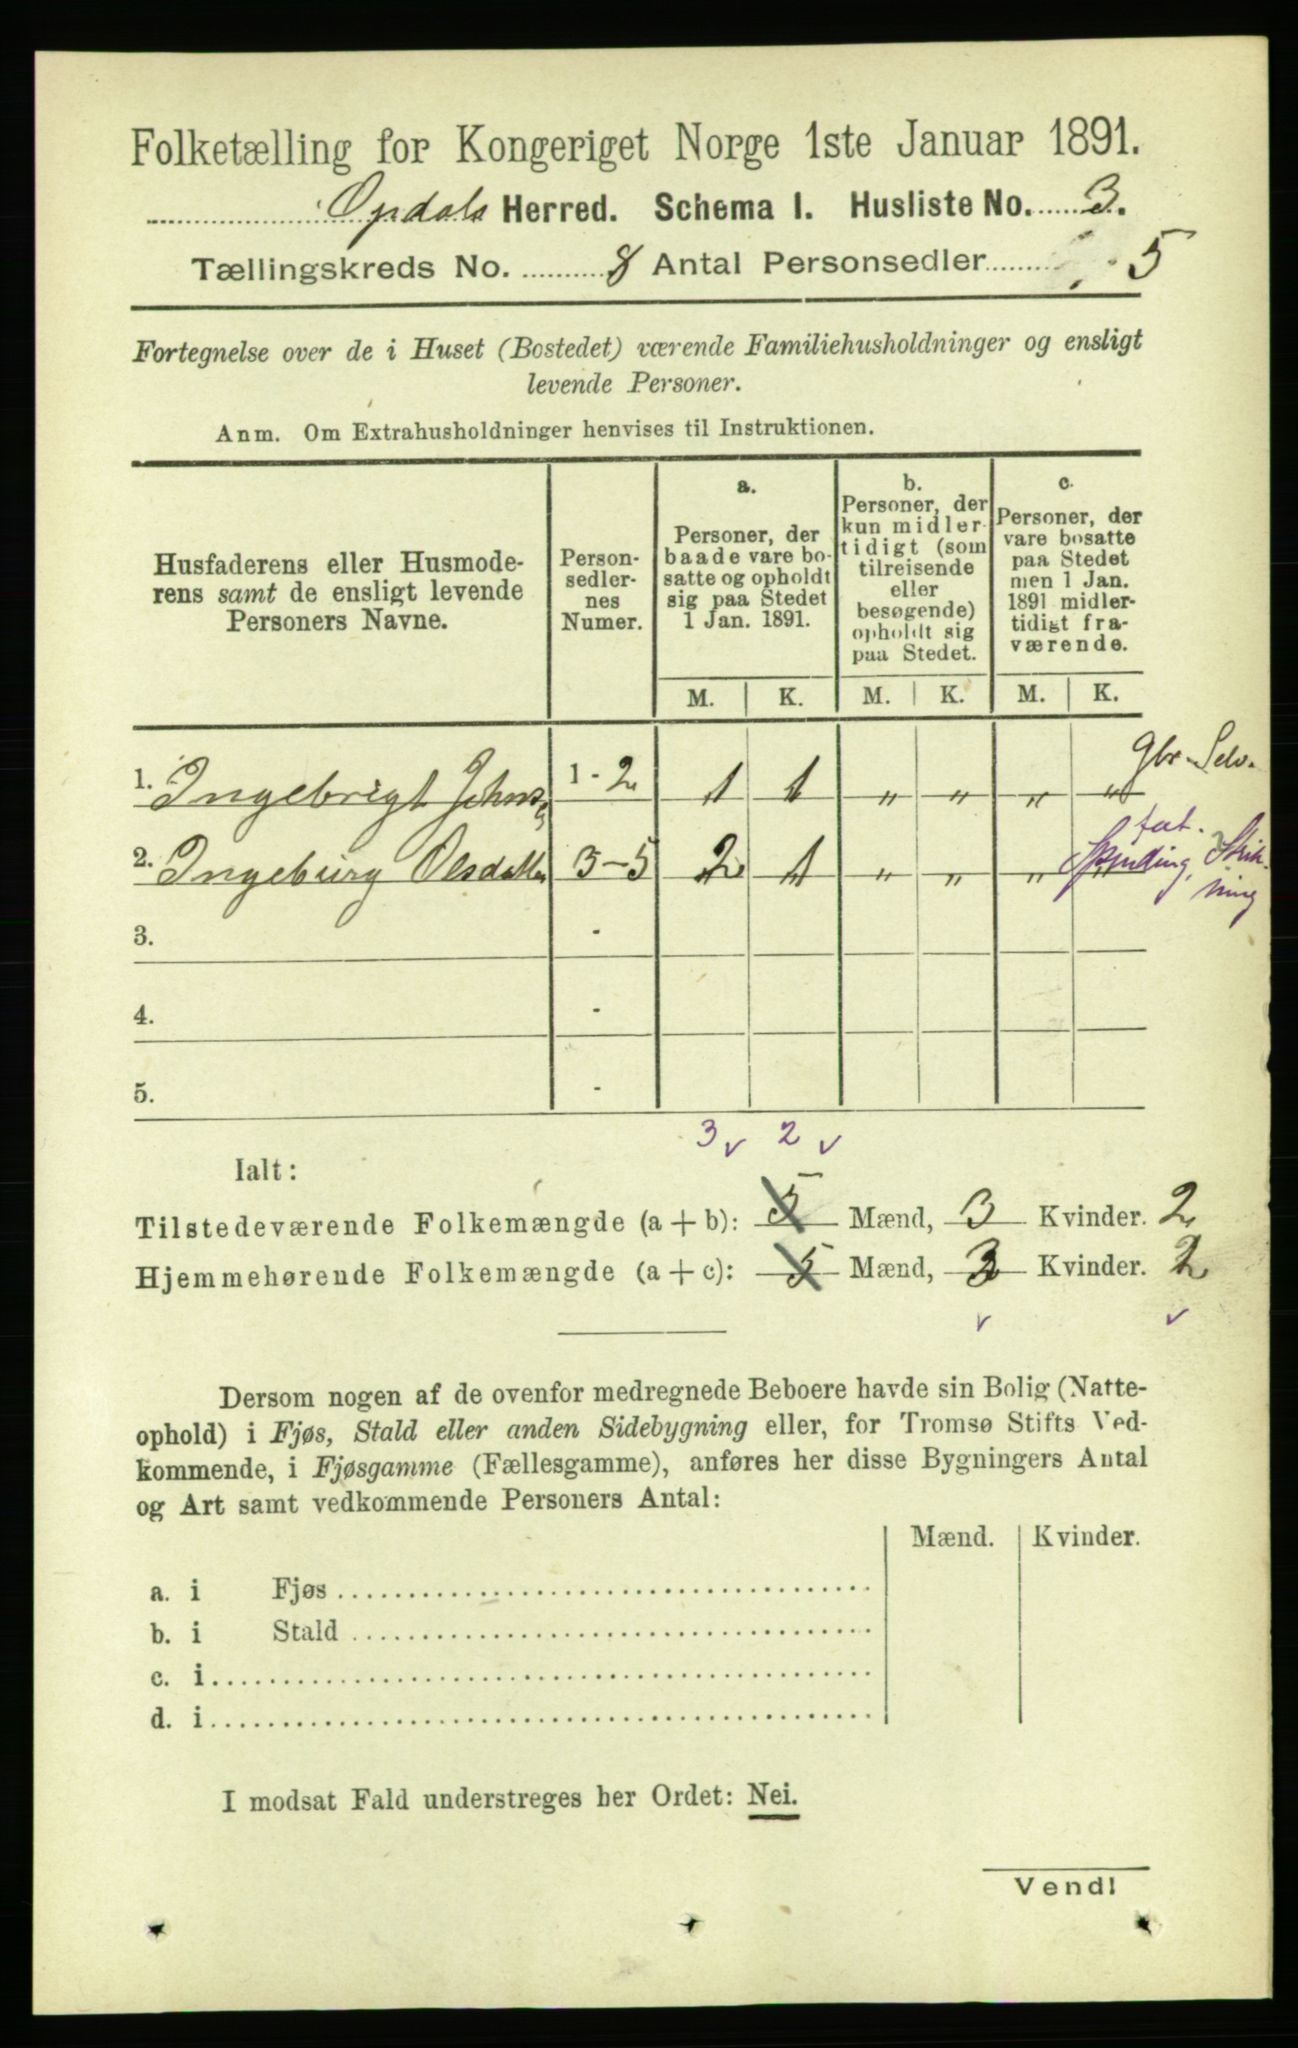 Folketælling for Kongeriget Norge 1ste Januar 1891.
Opdals Herred. Schema I. Husliste No. 3.
Tællingskreds No. 8 Antal Personsedler 5
Fortegnelse over de i Huset (Bostedet) værende Familiehusholdninger og ensligt
levende Personer.
Anm. Om Extrahusholdninger henvises til Instruktionen.
Husfaderens eller Husmode-
rens samt de ensligt levende
Personers Navne.
Person-
sedler-
nes
Numer.
a.
Personer, der
baade vare bo-
satte og opholdt
sig paa Stedet
1 Jan. 1891.
b.
Personer, der
kun midler-
tidigt (som
tilreisende
eller
besøgende)
opholdt sig
paa Stedet.
c.
Personer, der
vare bosatte
paa Stedet
men 1 Jan.
1891 midler-
tidigt fra-
værende.
M. K. M. K. M. K.
1. Ingebrigt Johns 1 - 2 1 1 „ „ „ „ Gbr. Selv.
2. Ingeburg Olsdatter 3 - 5 2 1 „ „ „ „ fat.
Spinding, Strik-
ning
3. -
4. -
5. -
3 v 2 v
Ialt:
Tilstedeværende Folkemængde (a + b): 5 Mænd, 3 Kvinder. 2
Hjemmehørende Folkemængde (a + c): 5 Mænd, 3 Kvinder. 2
v v
Dersom nogen af de ovenfor medregnede Beboere havde sin Bolig (Natte-
ophold) i Fjøs, Stald eller anden Sidebygning eller, for Tromsø Stifts Ved-
kommende, i Fjøsgamme (Fællesgamme), anføres her disse Bygningers Antal
og Art samt vedkommende Personers Antal:
Mænd. Kvinder.
a. i Fjøs
b. i Stald
c. i
d. i
I modsat Fald understreges her Ordet: Nei.
Vendl